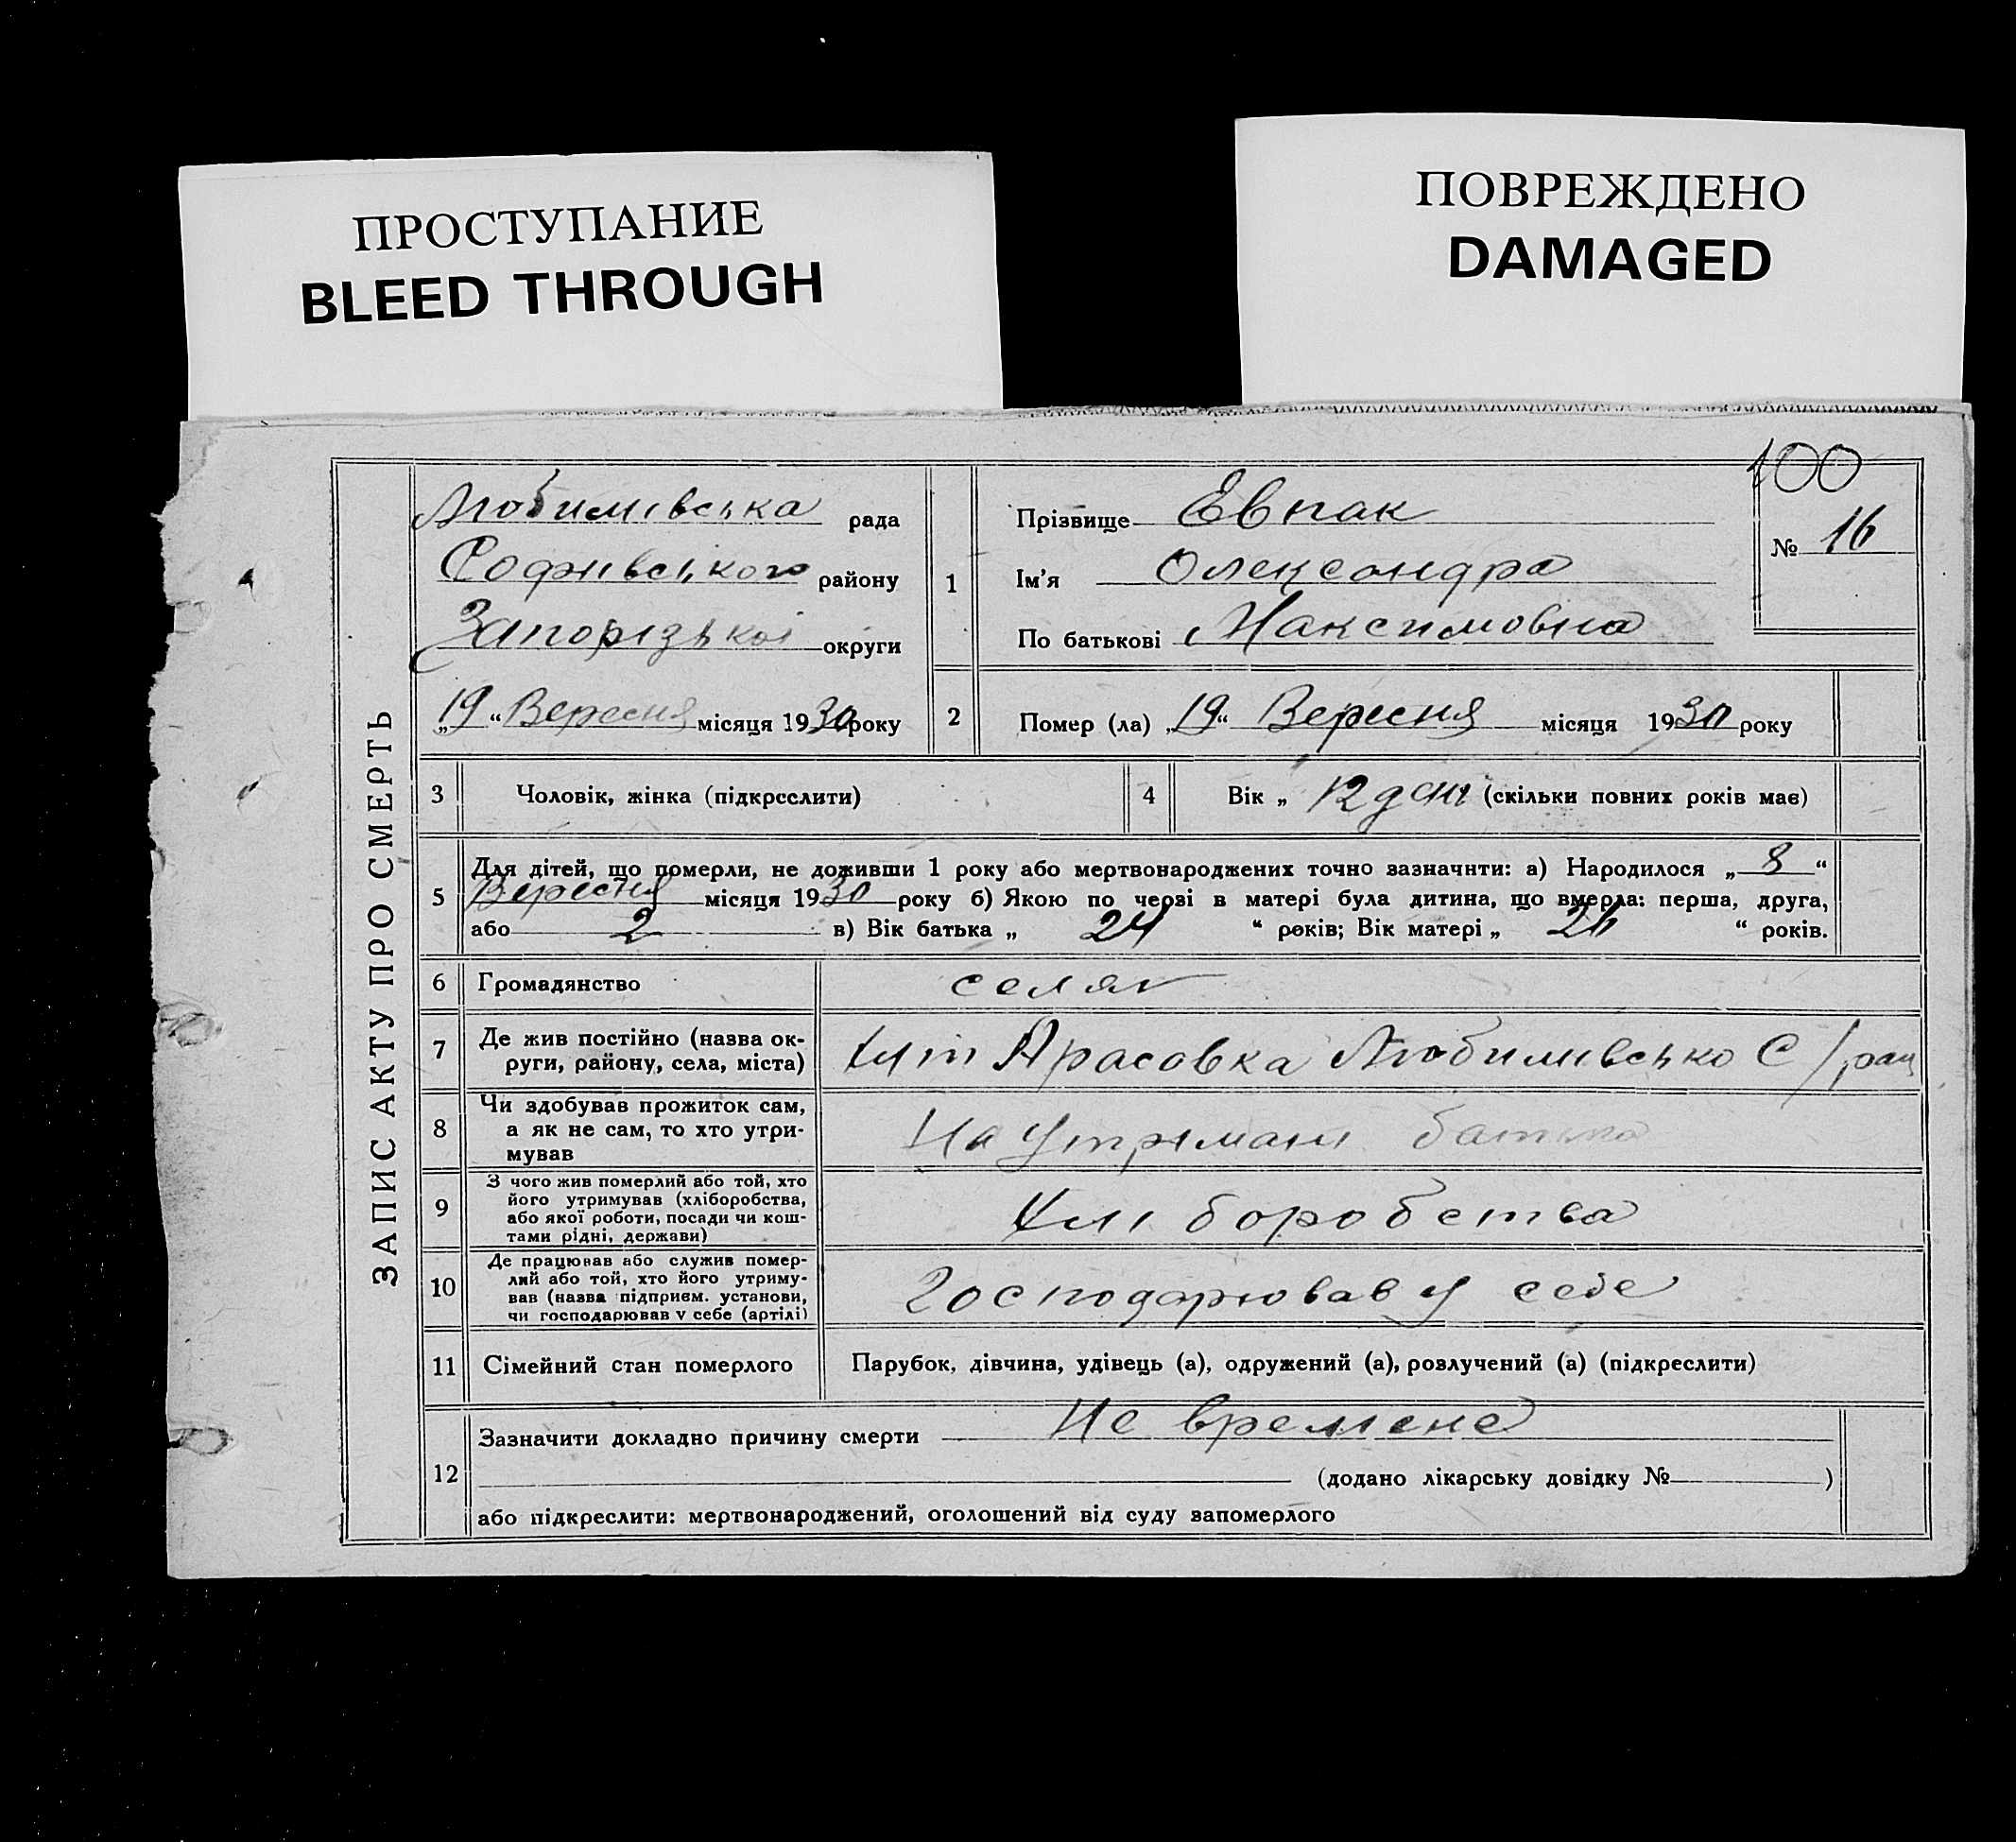 ПРОСТУПАНИЕ
BLEED THROUGH
ПОВРЕЖДЕНО
DAMAGED
100
ЗАПИС АКТУ ПРО СМЕРТЬ
Любимівська рада
Софиівського району
Запорізькоі округи
„19“ Вересня місяця 1930 року
1
Прізвище Евпак
Ім'я Олександра
По батькові Максимовна
№ 16
2 Помер (ла) „19“ Вересня місяця 1930 року
3 Чоловік, жінка (підкреслити)
4 Вік „ 12 дні (скільки повних років має)
5 Для дітей, що померли, не доживши 1 року або мертвонароджених точно зазначити: а) Народилося „8“
Вересня місяця 1930 року б) Якою по черві в матері була дитина, що вмерла: перша, друга,
або 2 в) Вік батька „ 24 “ років; Вік матері „ “ років.
6 Громадянство селян
7 Де жив постійно (назва ок-
руги, району, села, міста) Любимівсько С/рац
8 Чи здобував прожиток сам,
а як не сам, то хто утри-
мував На утримані батька
9 З чого жив померлий або той, хто
його утримував (хліборобства,
або якої роботи, посади чи кош-
тами рідні, держави) Хліборобства
10 Де працював або служив помер-
лий або той, хто його утриму-
вав (назва підприєм. установи,
чи господарював у себе (артілі) Господарював у себе
11 Сімейний стан померлого Парубок, дівчина, удівець (а), одружений (а), розлучений (а) (підкреслити)
12 Зазначити докладно причину смерти Не времене
(додано лікарську довідку № )
або підкреслити: мертвонароджений, оголошений від суду запомерлого